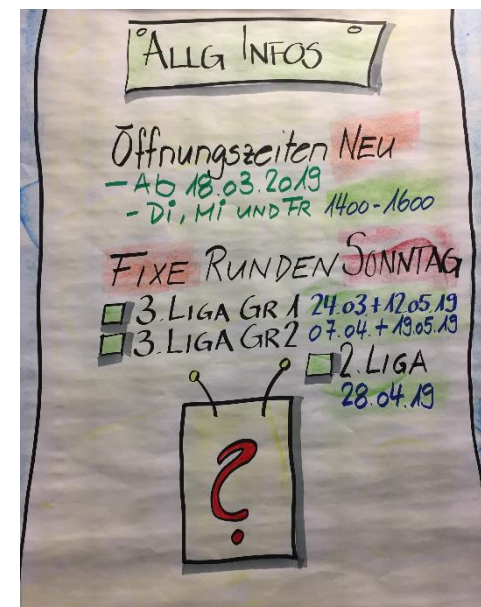 ALLG INFOS
Öffnungszeiten NEU
- Ab 18.03.2019
- Di, Mi UND FR 1400-1600
FIXE RUNDEN SONNTAG
3. LIGA GR 1 24.03.+12.05.19
3. LIGA GR 2 07.04.+19.05.19
2. LIGA
28.04.19
?